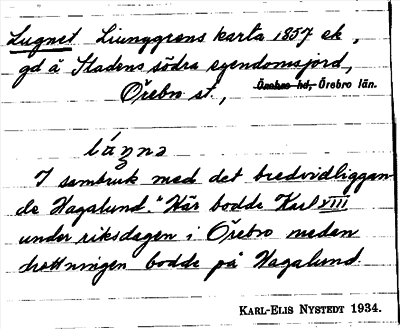 Lugnet Ljunggrens karta 1857 ek,
gd å Stadens södra egendomsjord,
Örebro st., Örebro hd, Örebro län.
I sambruk med det bredvidliggan
de Hagalund. "Här bodde Karl XIII
under riksdagen i Örebro medan
drottningen bodde på Hagalund.
KARL-ELIS NYSTEDT 1934.